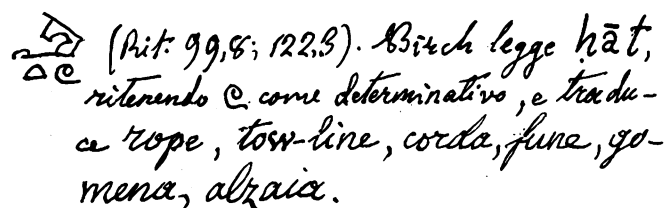 (Rit. 99,8; 122,3). Birch legge ḥāt,
ritenendo 𓏲 come determinativo, e tradu-
ce rope, tow-line, corda, fune, go-
mena, alzaia.